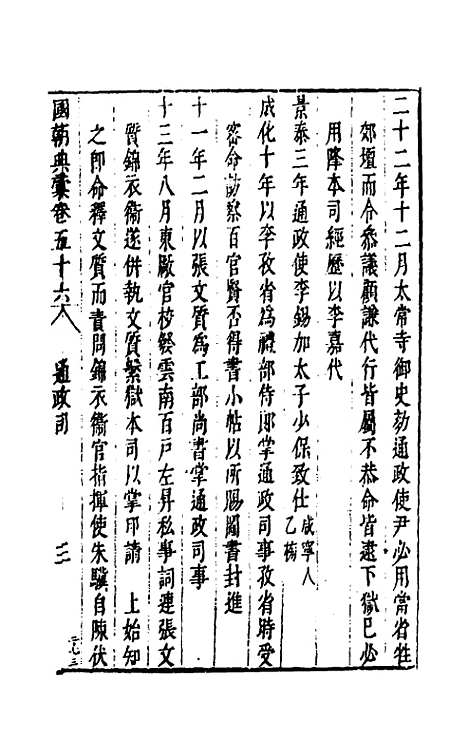 二十二年十二月太常寺御史劾通政使尹必用當省牲
郊壇而令叅議顧謙代行皆屬不恭命皆逮下獄巳必
用降本司經歷以李嘉代
景泰三年通政使李錫加太子少保致仕咸寧人乙榜
成化十年以李孜省為禮部侍郎掌通政司事孜省時受
密命訪察百官賢否得書小帖以所賜圖書封進
十一年二月以張文質為工部尚書掌通政司事
十三年八月東厰官校發雲南百戶左昇私事詞連張文
質錦衣衞遂併執文質繫獄本司以掌印請 上始知
之即命釋文質而責問錦衣衞官指揮使朱驥自陳伏
國朝典彙卷五十六 通政司 三